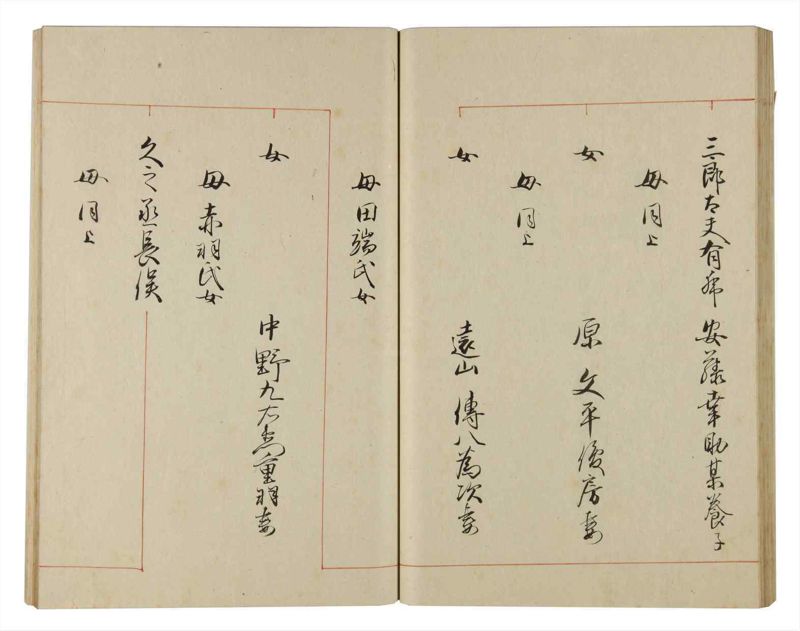 三郎太夫有𠮷 安藤幸助某養子
母同上
女 原文平優房妻
母同上
女 遠山傳八為次妻
母田端氏女
女 中野九右衛門重明妻
母赤羽氏女
久之丞長僕
母同上